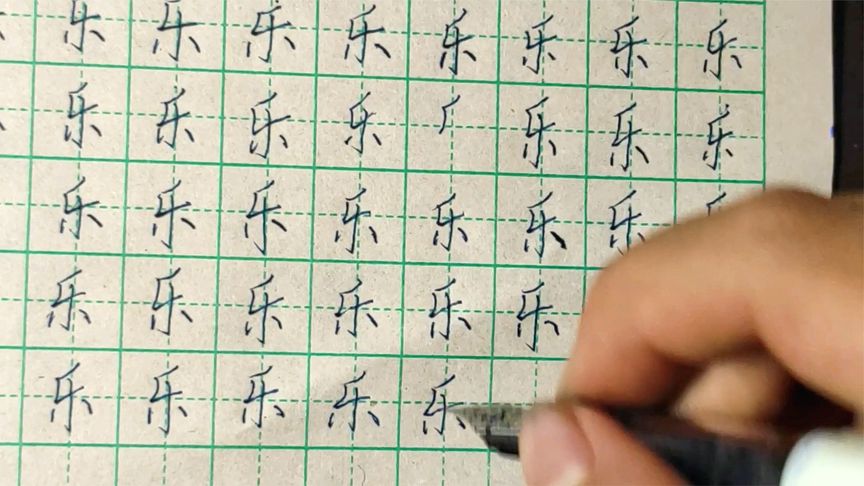 乐乐乐乐乐乐乐乐
乐乐乐乐乐乐乐
乐乐乐乐乐乐乐
乐乐乐乐乐乐
乐乐乐乐乐